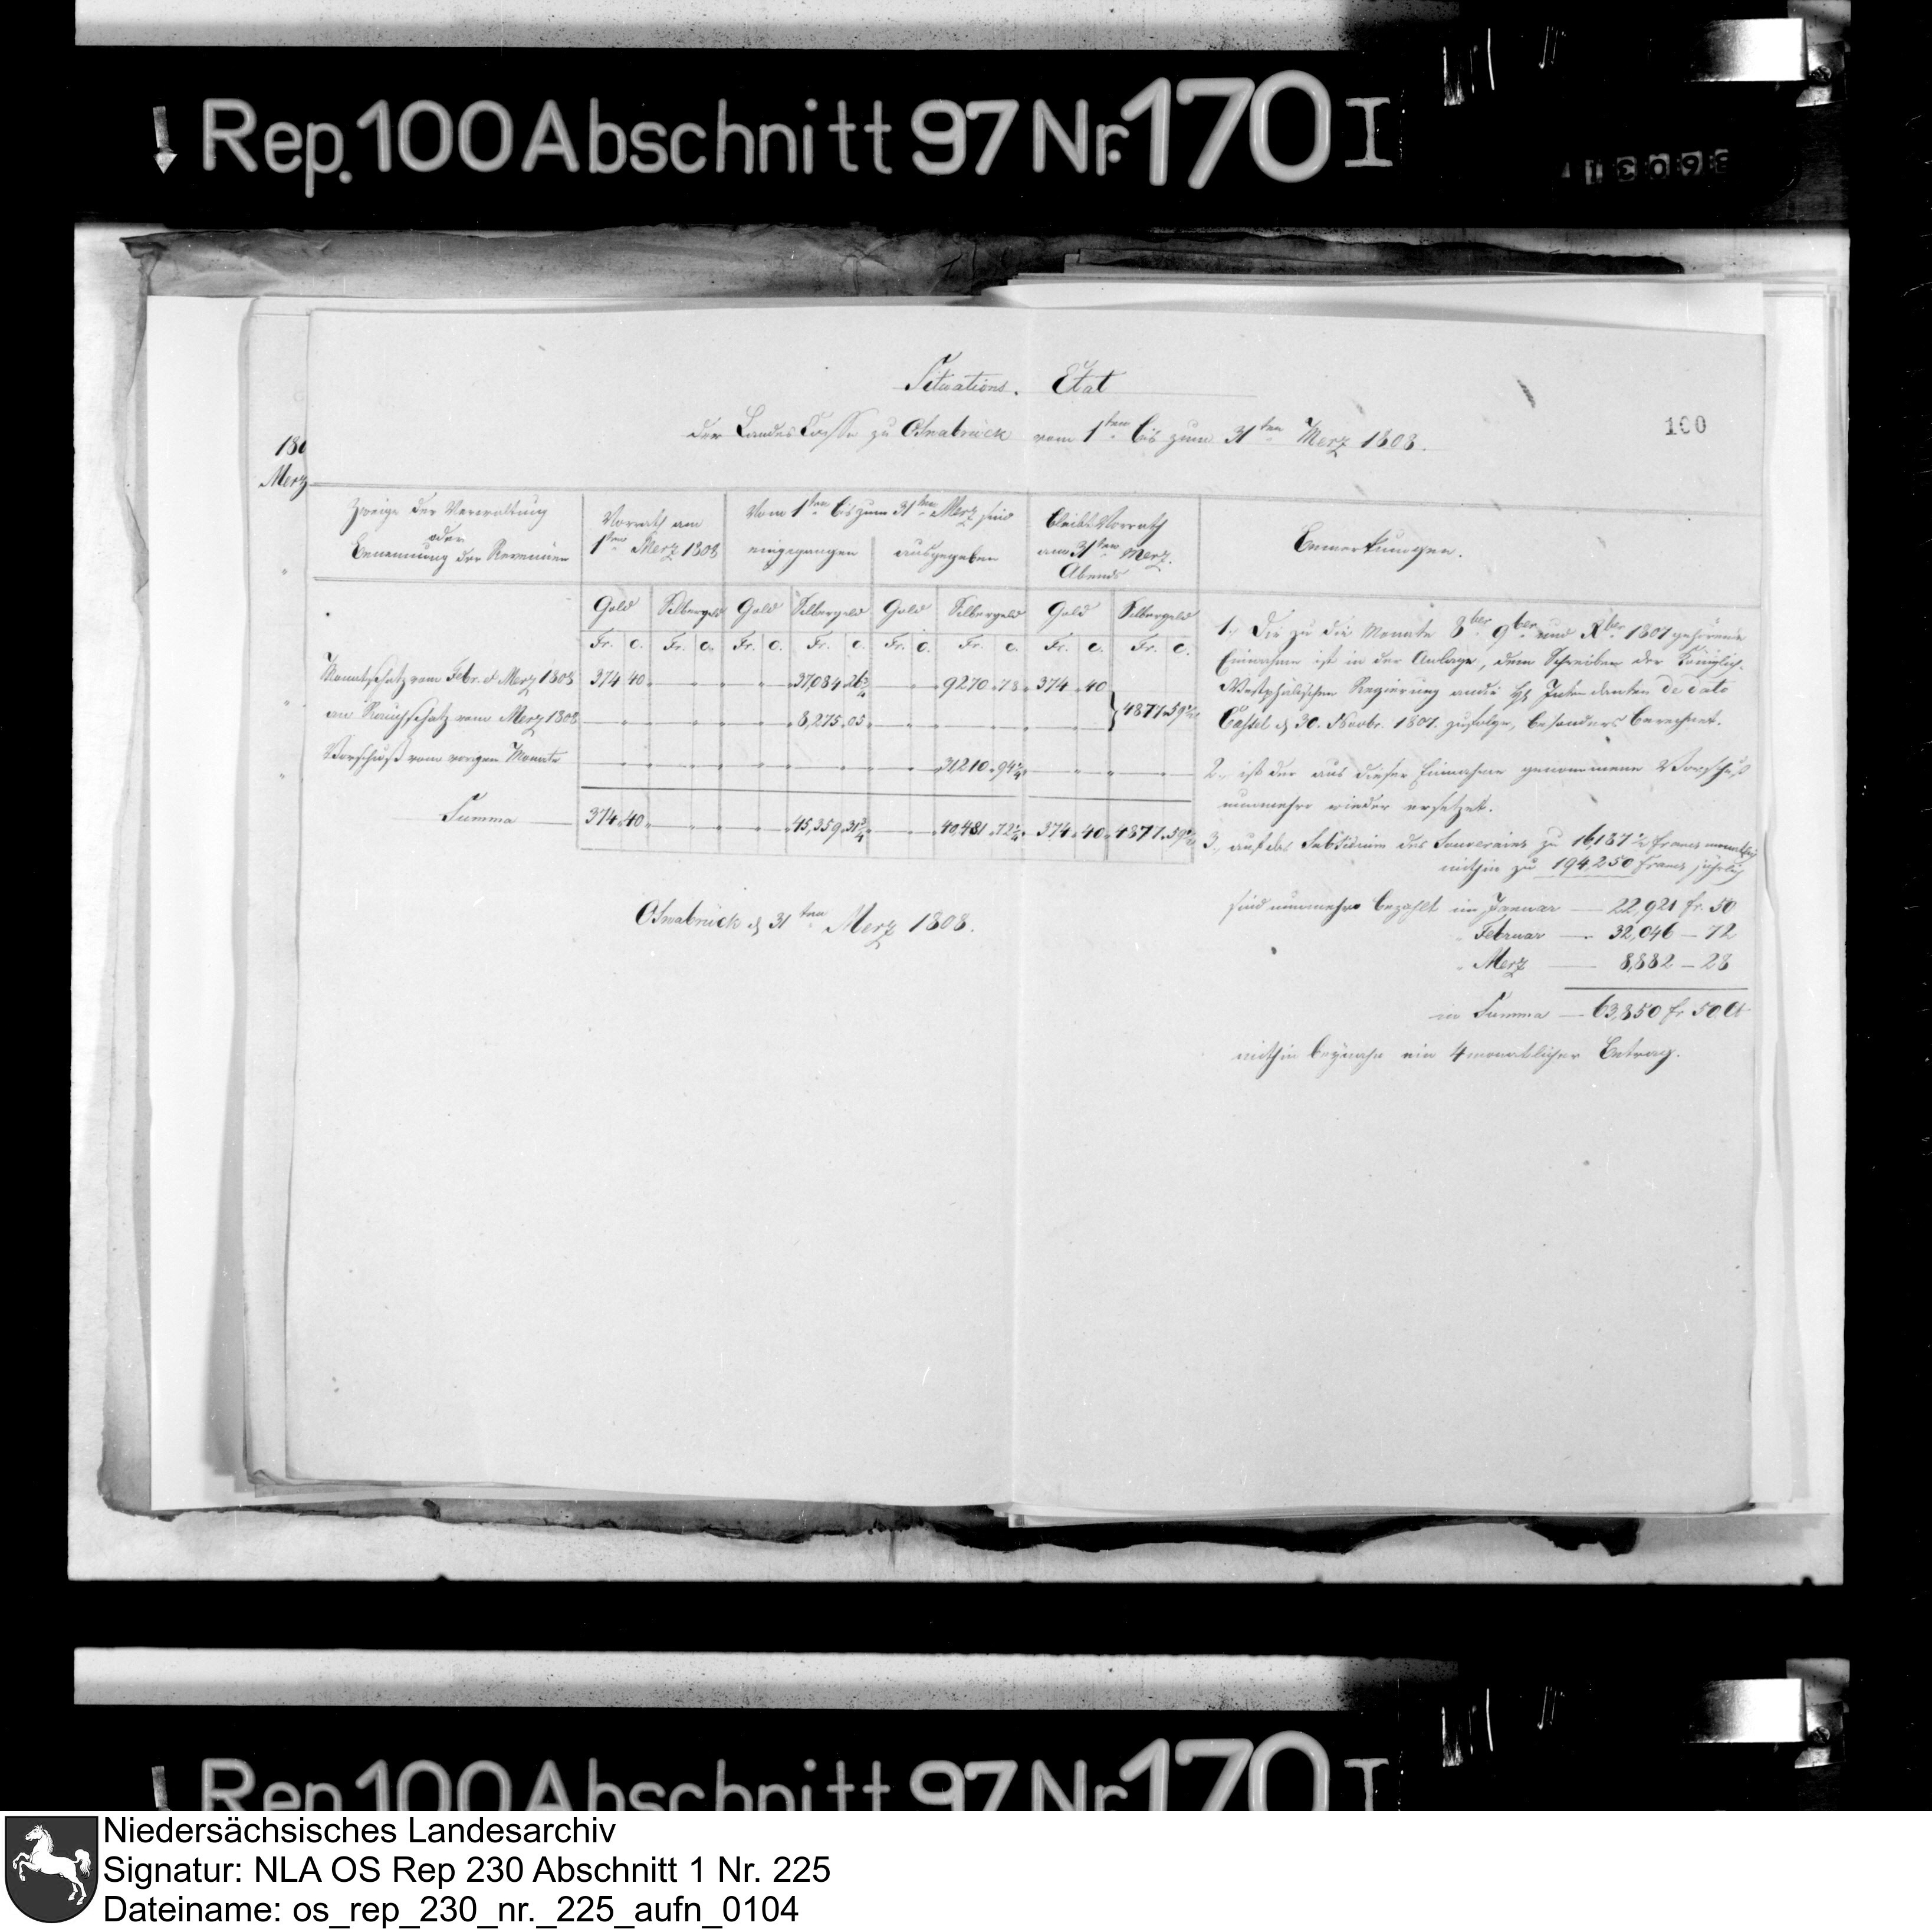 Rep. 100 Abschnitt 97 Nr. 170 I
Situations. Etat
der Landes Casse zu Osnabrück vom 1ten bis zum 31ten Merz 1808.
100
180
Merz
Zweige der Verwaltung
oder
Benennung der Revenüen
Vorrath am
1ten Merz 1808
Vom 1ten bis zum 31ten Merz sind
eingegangen
ausgegeben
bleibt Vorrath
am 31ten Merz.
Abends
Bemerkungen.
Gold Silbergeld Gold Silbergeld Gold Silbergeld Gold Silbergeld
Fr. c. Fr. c. Fr. c. Fr. c. Fr. c. Fr. c. Fr. c. Fr. c.
Monatschatz vom Febr. & Merz 1808 374 40 37,084 26¾ 9270 78 374 40
an Rauchschatz vom Merz 1808 8,275 05 4877 59
Vorschuß vom vorigen Monate 31,210 94
Summa 374 40 45,359 31¾ 40,481 72 374 40 4877 59
1., Die zu die Monate 8ber 9ber und Xber 1807 gehörende
Einnahme ist in der Anlage, dem Schreiben der Königlich
Westphälischen Regierung an die HH Intendanten de dato
Cassel d 30. Novbr. 1807. zufolge, besonders berechnet.
2., ist der aus dieser Einnahme genommene Vorschuß
nunmehro wieder ersetzet.
3., auf das Subsidium des Souverains zu 16,187½ Francs monatlich
mithin zu 194,250 Francs jährlich
sind nunmehro bezahlt im Januar — 22,921 fr. 50
" Februar — 32,046 — 72
" Merz — 8,882 — 28
in Summa — 63,850 fr 50 Ct
mithin beynahe ein 4 monatlicher Betrag.
Osnabrück d 31ten Merz 1808.
Rep. 100 Abschnitt 97 Nr. 170 I
Niedersächsisches Landesarchiv
Signatur: NLA OS Rep 230 Abschnitt 1 Nr. 225
Dateiname: os_rep_230_nr._225_aufn_0104